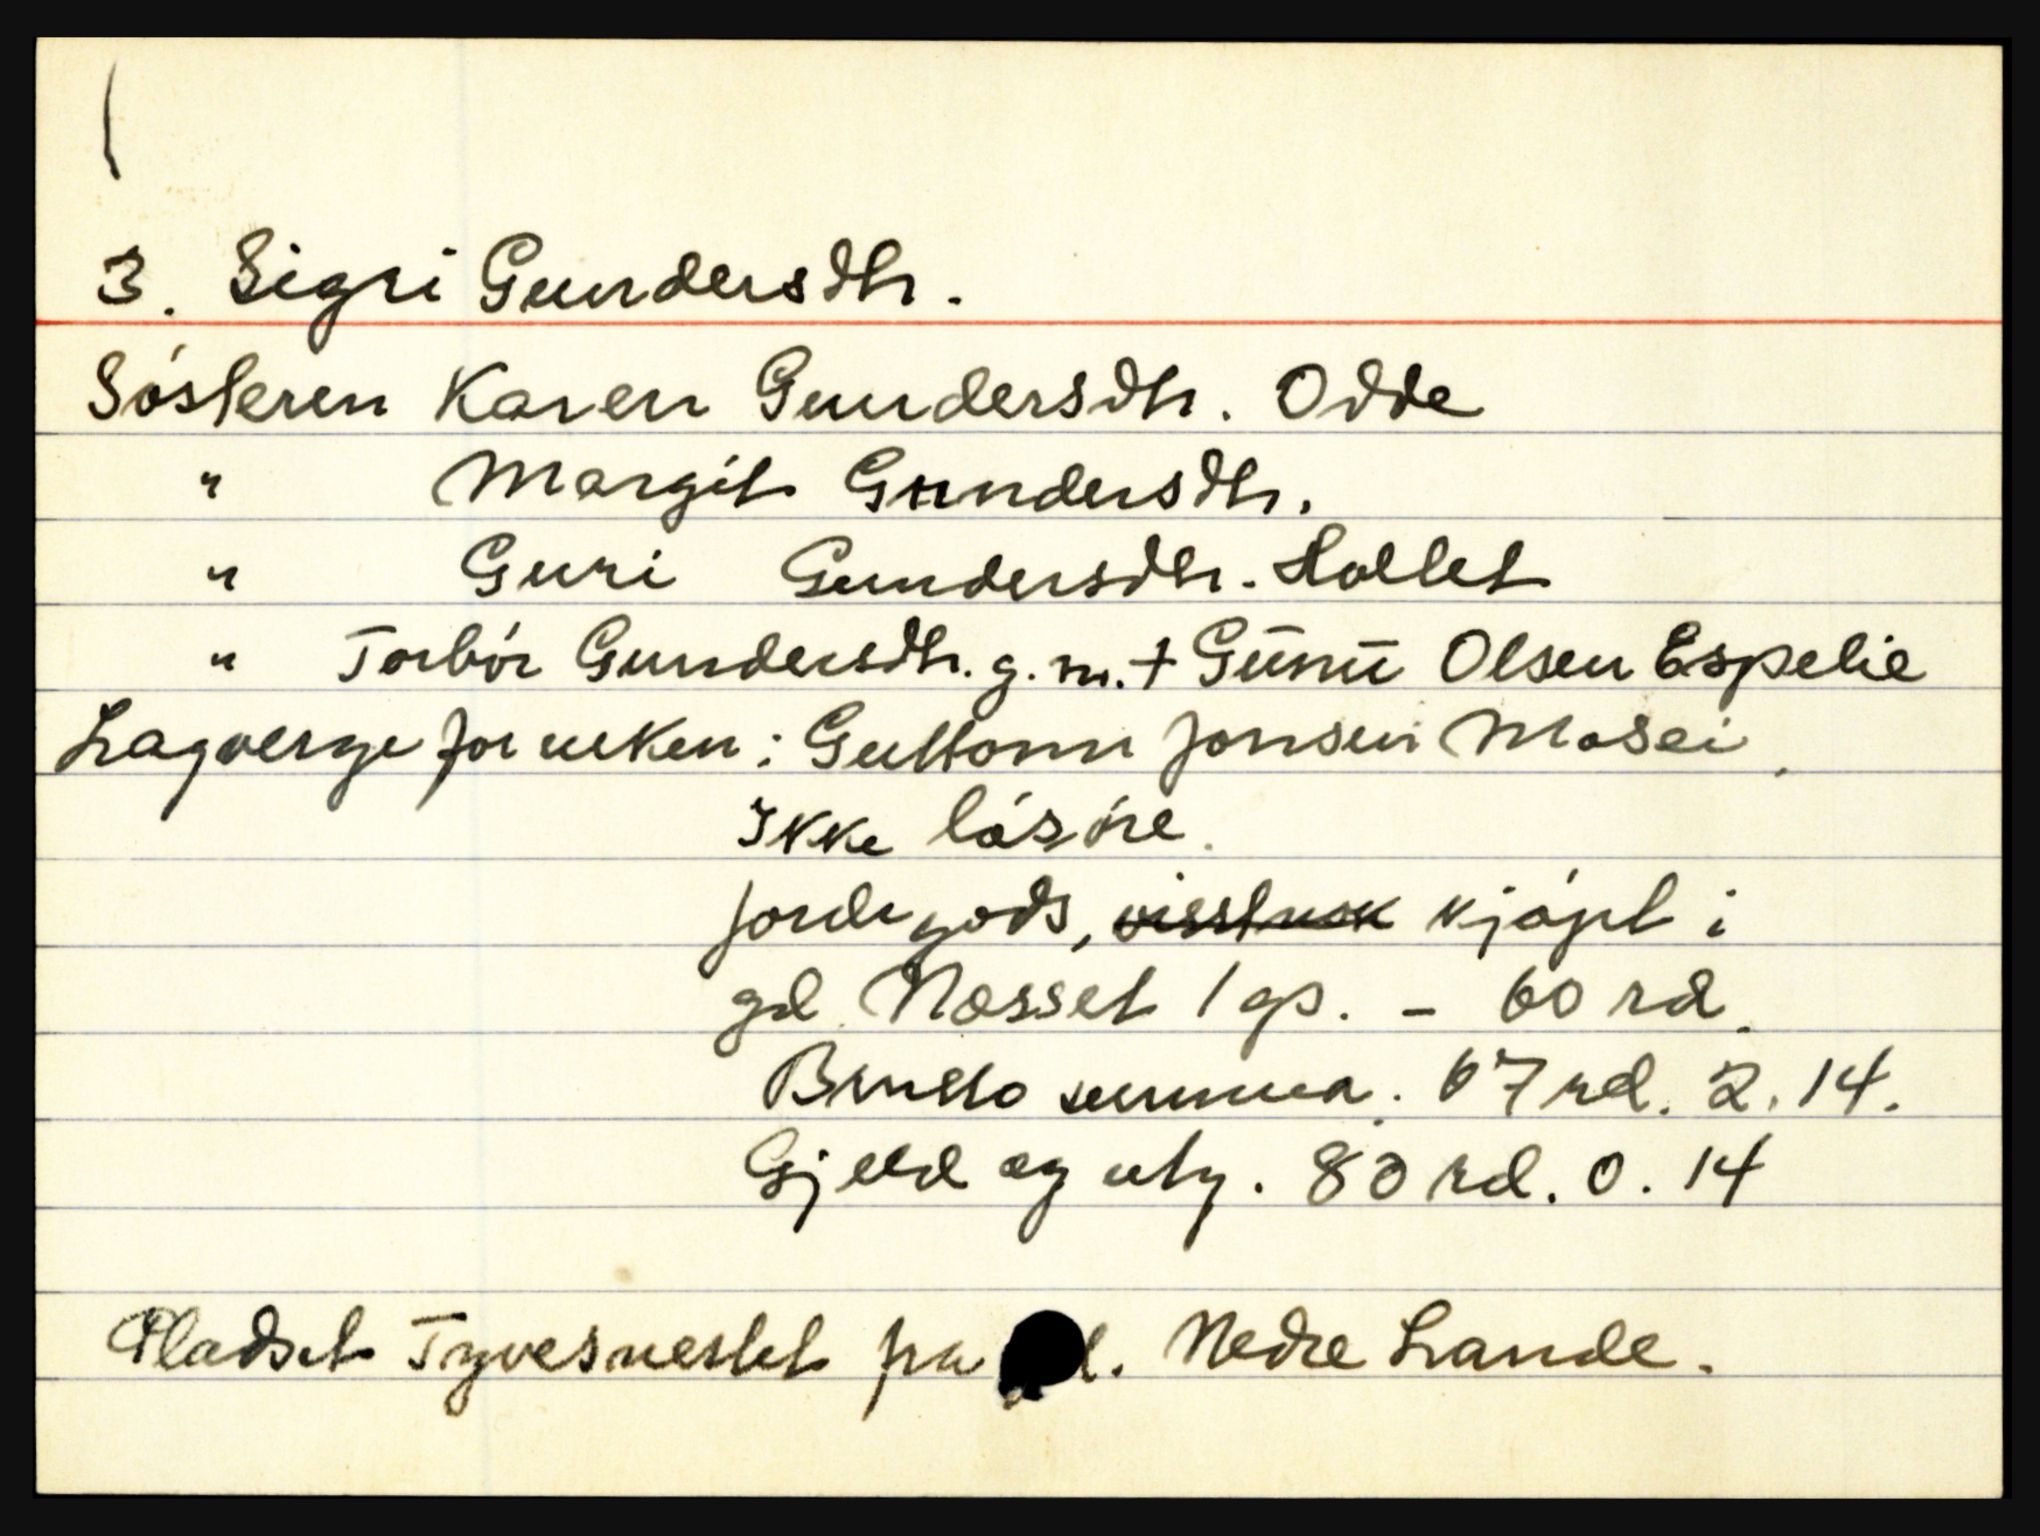 3. Sigri Gundersdtr.
Søsteren Karen Gundersdtr. Odde
" Margit Gundersdtr.
" Guri Gundersdtr. Hollet
" Torbór Gundersdtr. g.m. + Gūnū Olsen Espelie
Lagverge for enken: Guttorm Jonsen Mosei.
Ikke løsøre.
Jordegods, kjøpt i
gd. Næsset 1 gs. - 60 rd.
Brutto summa. 67 rd. 2. 14.
Gjeld og utg. 80 rd. 0. 14
Pladset Tyvesnestet på Nedre Lande.